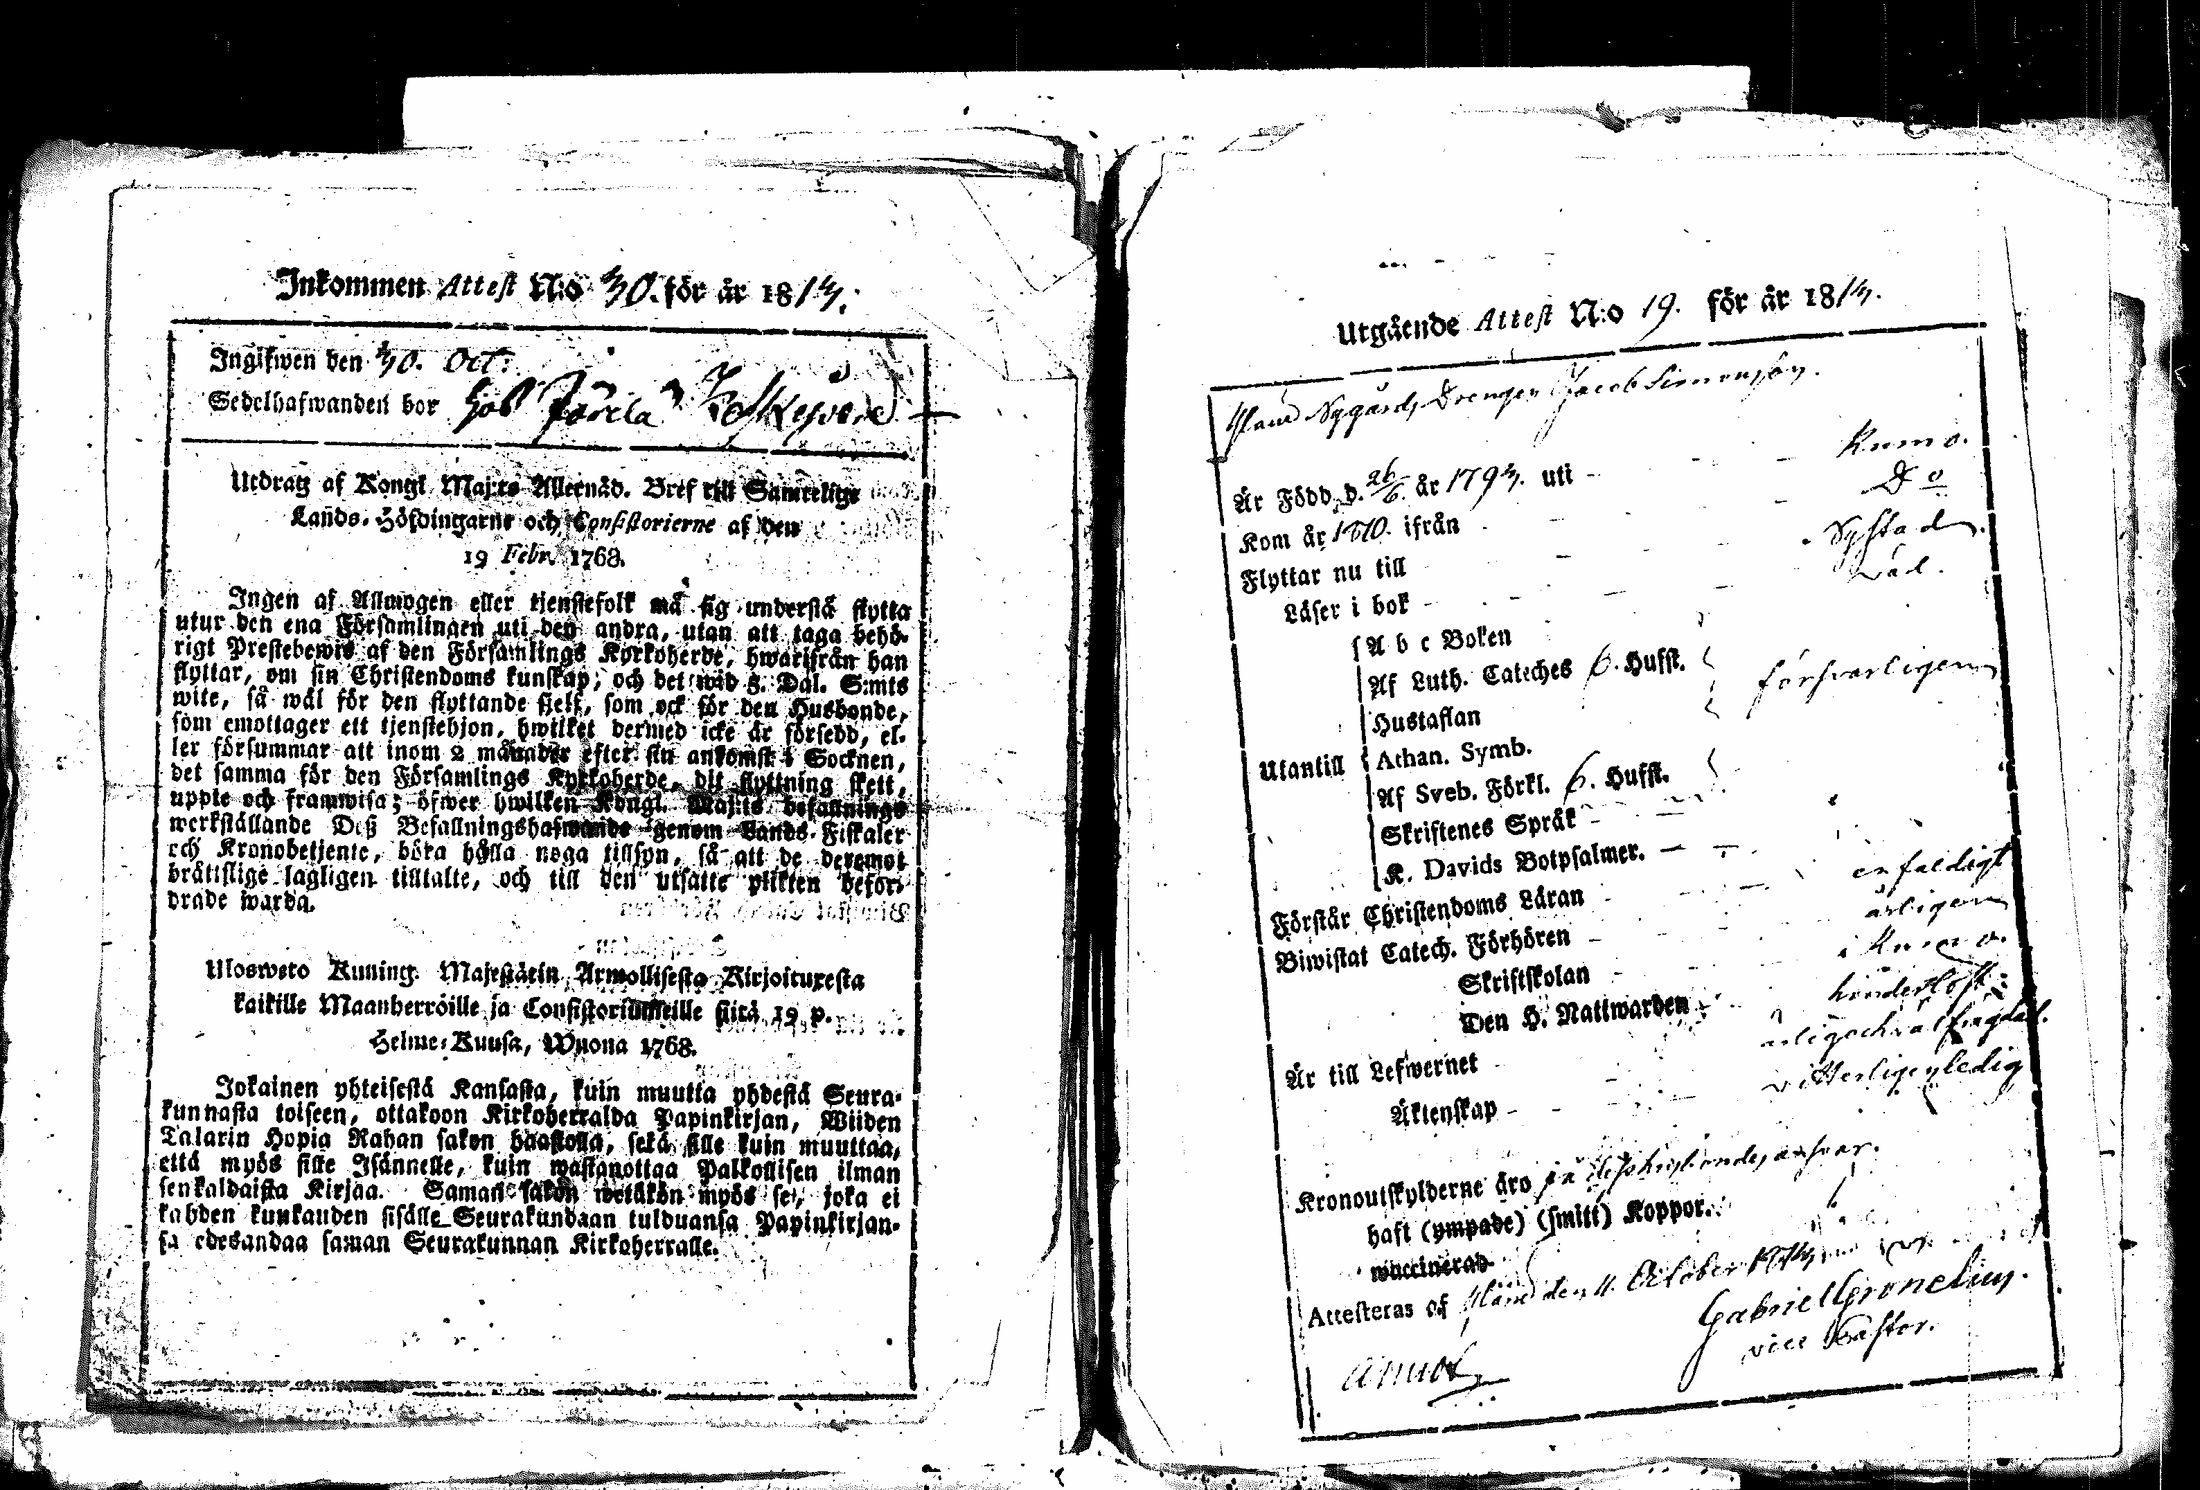 Inkommen Attest N:o 30. för år 1813.
Ingifwen den 30. Oct:
Sedelhafwanden bor hos
Utdrag af Kongl. Maj:ts Allernåd. Bref till Samtelige
Lands-Höfdingarne och Consistorierne af den
19 Febr. 1768.
Ingen af Allmogen eller tjenstefolk må sig understå flytta
utur den ena Församlingen uti den andra, utan att taga behö-
rigt Prestebewis af den Församlings Kyrkoherde, hwarifrån han
flyttar, om sin Christendoms kunskap; och det wid 5. Dal. S:mts
wite, så wäl för den flyttande sjelf, som ock för den Husbonde,
som emottager ett tjenstehjon, hwilket dermed icke är försedd, el-
ler försummar att inom 2 månader efter sin ankomst i Socknen,
det samma för den Församlings Kyrkoherde, dit flyttning skett,
uppte och framwisa; öfwer hwilken Kongl. Maj:ts befallnings
werkställande Deß Befallningshafwande genom Lands-Fiskaler
och Kronobetjente, böra hålla noga tillsyn, så att de deremot
bråttslige lagligen tilltalte, och till den utsatte plikten beför-
drade warda.
Uloswето Kuning. Majestätin Armollisesta Kirjoituxesta
kaikille Maanherröille ja Consistoriumeille siitä 19 p.
Helme-Kuusa, Wuona 1768.
Jokainen yhteisestä Kansasta, kuin muutta yhdestä Seura-
kunnasta toiseen, ottakoon Kirkoherralda Papinkirjan, Wiiden
Talarin Hopia Rahan sakon haastolla, sekä sille kuin muuttaa,
että myös sille Isännelle, kuin wastanottaa Palkollisen ilman
senkaldaista Kirjaa. Saman sakon wetäkön myös se, joka ei
kahden kuukauden sisälle Seurakundaan tulduansa Papinkirjan-
sa edesandaa saman Seurakunnan Kirkoherralle.
Utgående Attest N:o 19. för år 1813.
Nygårds Drengen Jacob Simonsson.
Är Född d. 26/6. år 1793. uti Kumo.
Kom år 1810. ifrån Do
Flyttar nu till Nystad.
Läser i bok wäl.
A b c Boken
Af Luth. Cateches 6. Hufst. försvarligen
Hustaflan
Utantill Athan. Symb.
Af Sveb. Förkl. 6. Hufst.
Skriftenes Språk
K. Davids Botpsalmer.
Förstår Christendoms Läran enfaldigt
Biwistat Catech. Förhören årligen
Skriftskolan i Kumo.
Den H. Nattwarden
Är till Lefwernet ärlig och
Äktenskap witterligen ledig
Kronoutskylderne äro på dess husbondes answar.
haft (ympade) (smitt) Koppor.
waccinerad
Attesteras af den 11. October 1813.
Gabriel Gronelius.
vice Pastor.